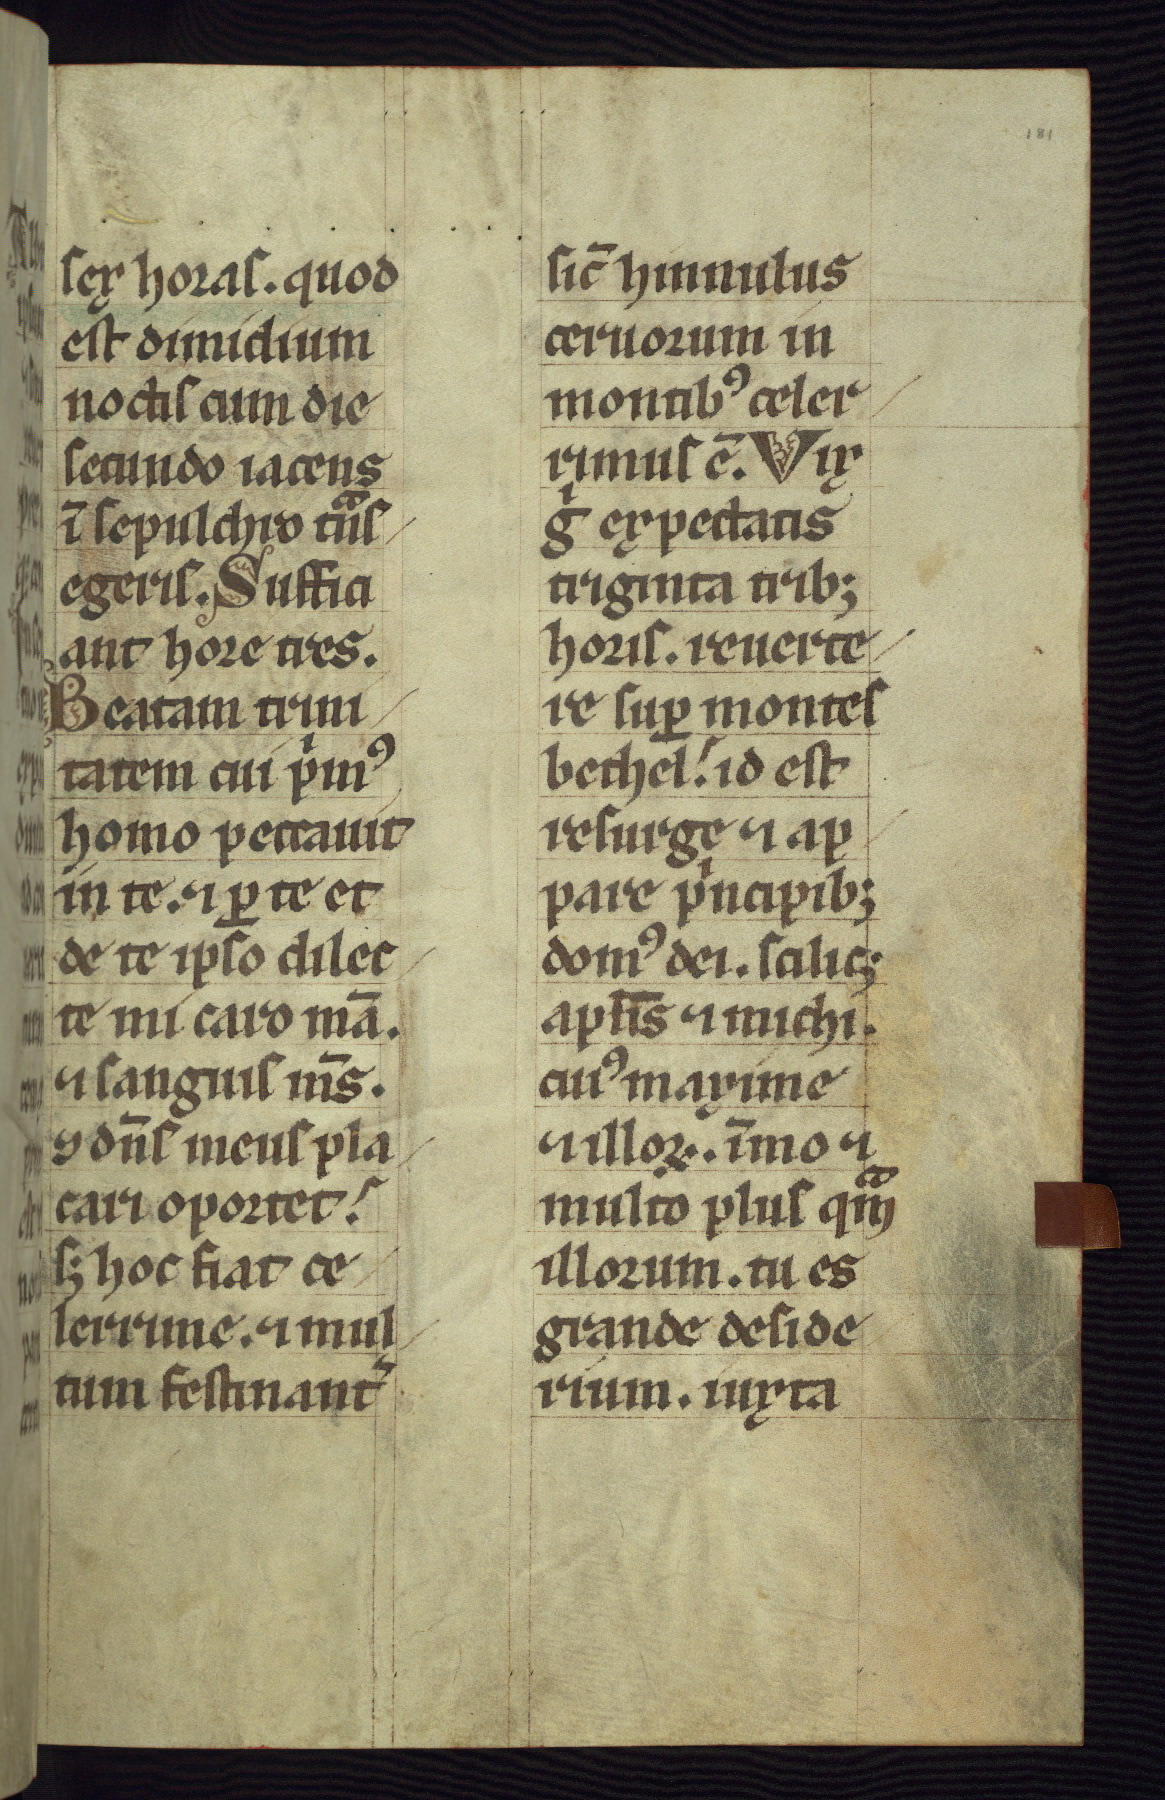 181
sex horas. quod
est dimidium
noctis cum die
secundo iacens
ī sepulchro tͣnſ
egeris. Suffici
ant hore tres.
Beatam trini
tatem cui pͥmꝰ
homo peccauit
in te. ⁊ ꝑ te et
de te ipso dilec
te mi caro mā.
⁊ sanguis m̄s.
⁊ dn̄s meus pla
cari oportet!
sꝫ hoc fiat ce
lerrime. ⁊ mul
tum festinant᷑
sic̄ hinnulus
ceruorum in
montibꝰ celer
rimus ē. Vix
gͥ expectatis
triginta tribꝫ
horis. reuerte
re suꝑ montes
bethel! id est
resurge ⁊ ap
pare pͥncipibꝫ
domꝰ dei. scilicꝫ
apl̄is ⁊ michi.
cuiꝰ maxime
⁊ illoꝝ. īmo ⁊
multo plus qͣm
illorum. tu es
grande deside
rium. iuxta